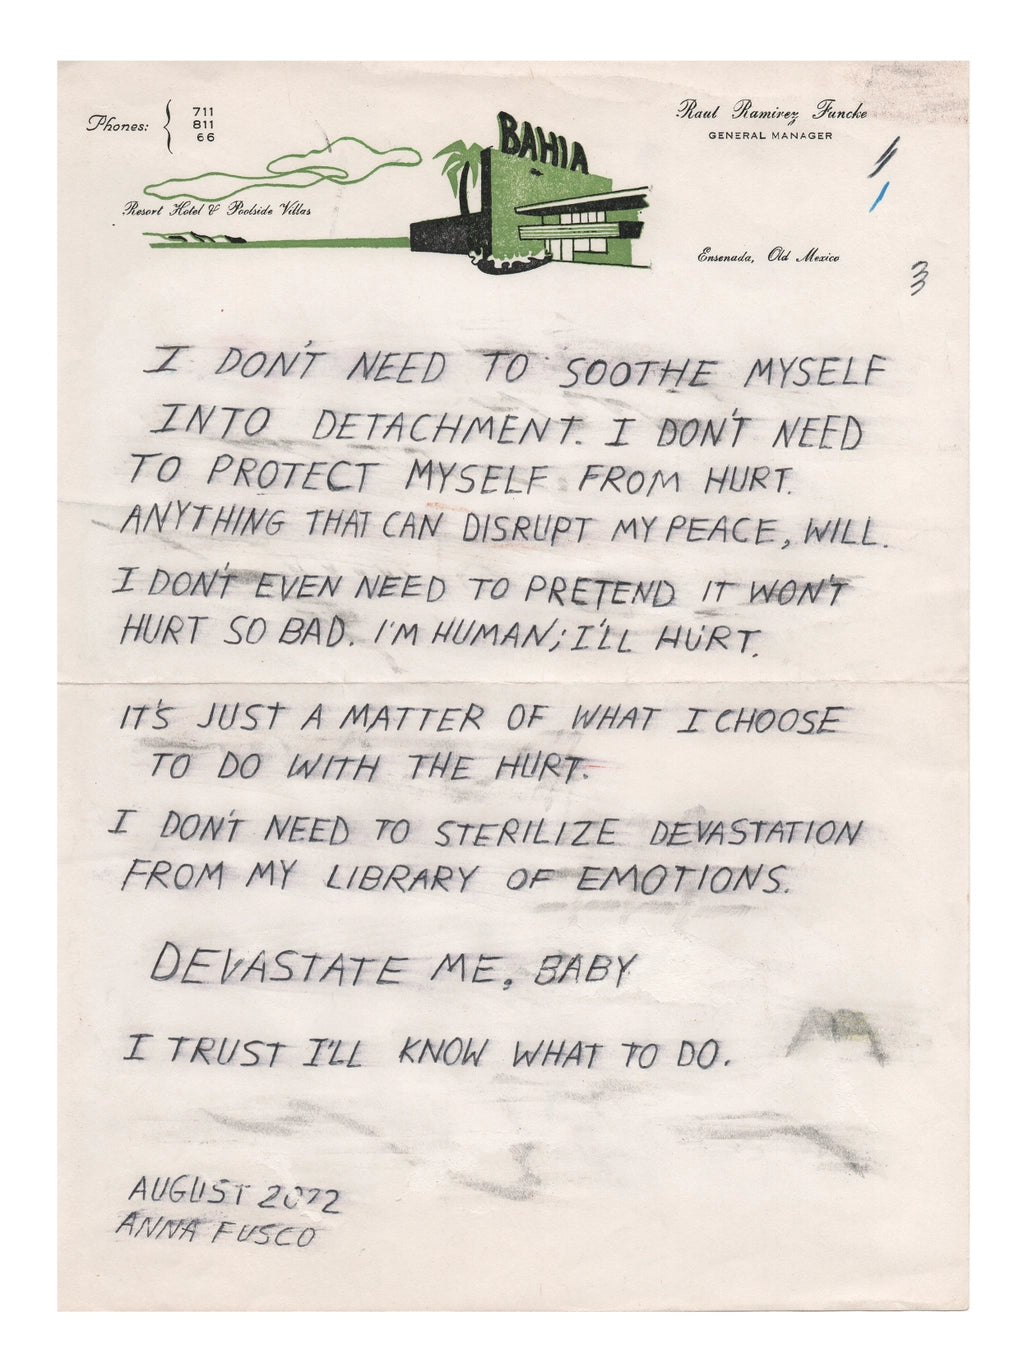 Phones: { 711
811
66
BAHIA
Raul Ramirez Funcke
GENERAL MANAGER
Resort Hotel & Poolside Villas
Ensenada, Old Mexico
3
I DON'T NEED TO SOOTHE MYSELF
INTO DETACHMENT. I DON'T NEED
TO PROTECT MYSELF FROM HURT.
ANYTHING THAT CAN DISRUPT MY PEACE, WILL.
I DON'T EVEN NEED TO PRETEND IT WON'T
HURT SO BAD. I'M HUMAN; I'LL HURT.
IT'S JUST A MATTER OF WHAT I CHOOSE
TO DO WITH THE HURT.
I DON'T NEED TO STERILIZE DEVASTATION
FROM MY LIBRARY OF EMOTIONS.
DEVASTATE ME, BABY
I TRUST I'LL KNOW WHAT TO DO.
AUGUST 2022
ANNA FUSCO